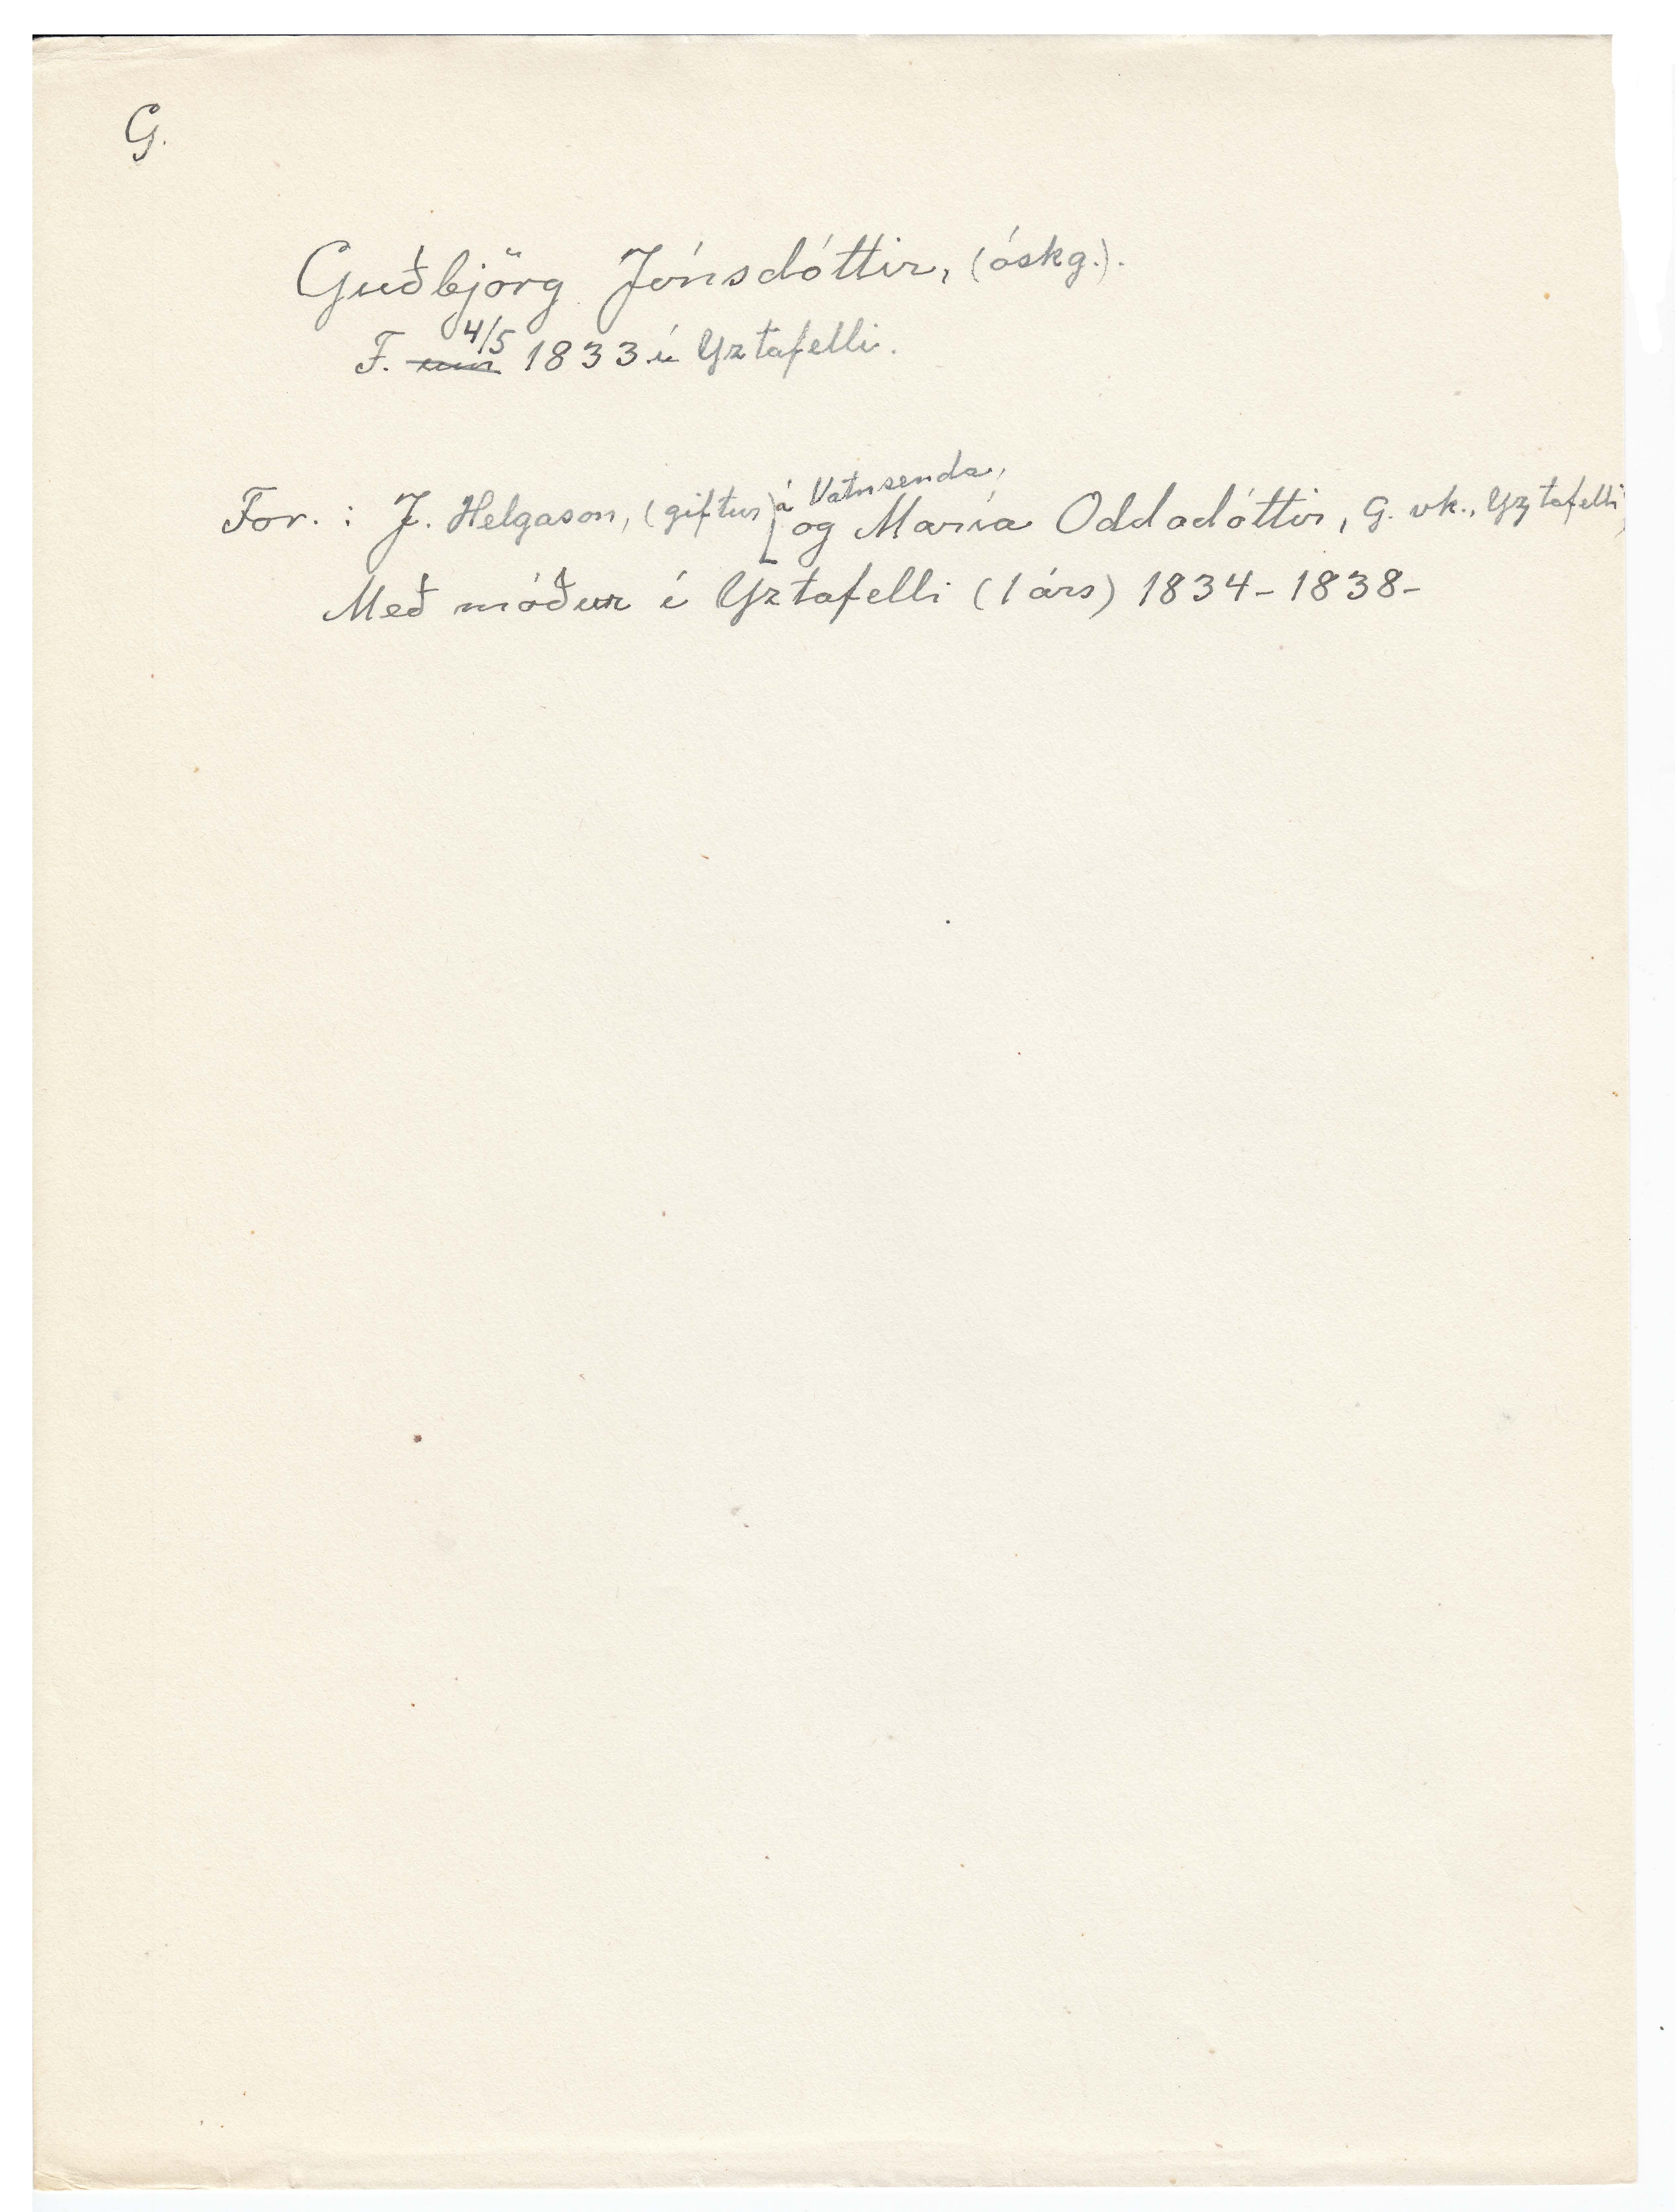 G.
Guðbjörg Jónsdóttir, (óskg.).
F. um 4/5 1833 í Yztafelli.
For. : J. Helgason, (giftur) á Vatnsenda, og María Oddadóttir, G. vk., Yztafelli
Með móður í Yztafelli (1 árs) 1834-1838-